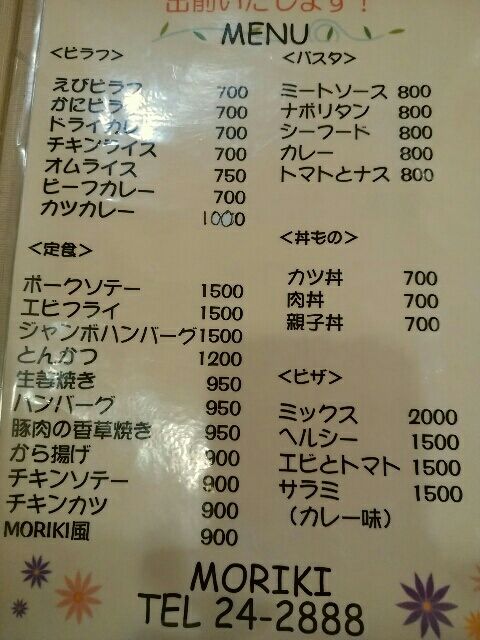 出前いたします！
MENU
<ピラフ>
えびピラフ 700
かにピラフ 700
ドライカレー 700
チキンライス 700
オムライス 750
ビーフカレー 700
カツカレー 1000
<定食>
ポークソテー 1500
エビフライ 1500
ジャンボハンバーグ 1500
とんかつ 1200
生姜焼き 950
ハンバーグ 950
豚肉の香草焼き 950
から揚げ 900
チキンソテー 900
チキンカツ 900
MORIKI風 900
<パスタ>
ミートソース 800
ナポリタン 800
シーフード 800
カレー 800
トマトとナス 800
<丼もの>
カツ丼 700
肉丼 700
親子丼 700
<ピザ>
ミックス 2000
ヘルシー 1500
エビとトマト 1500
サラミ 1500
（カレー味）
MORIKI
TEL 24-2888